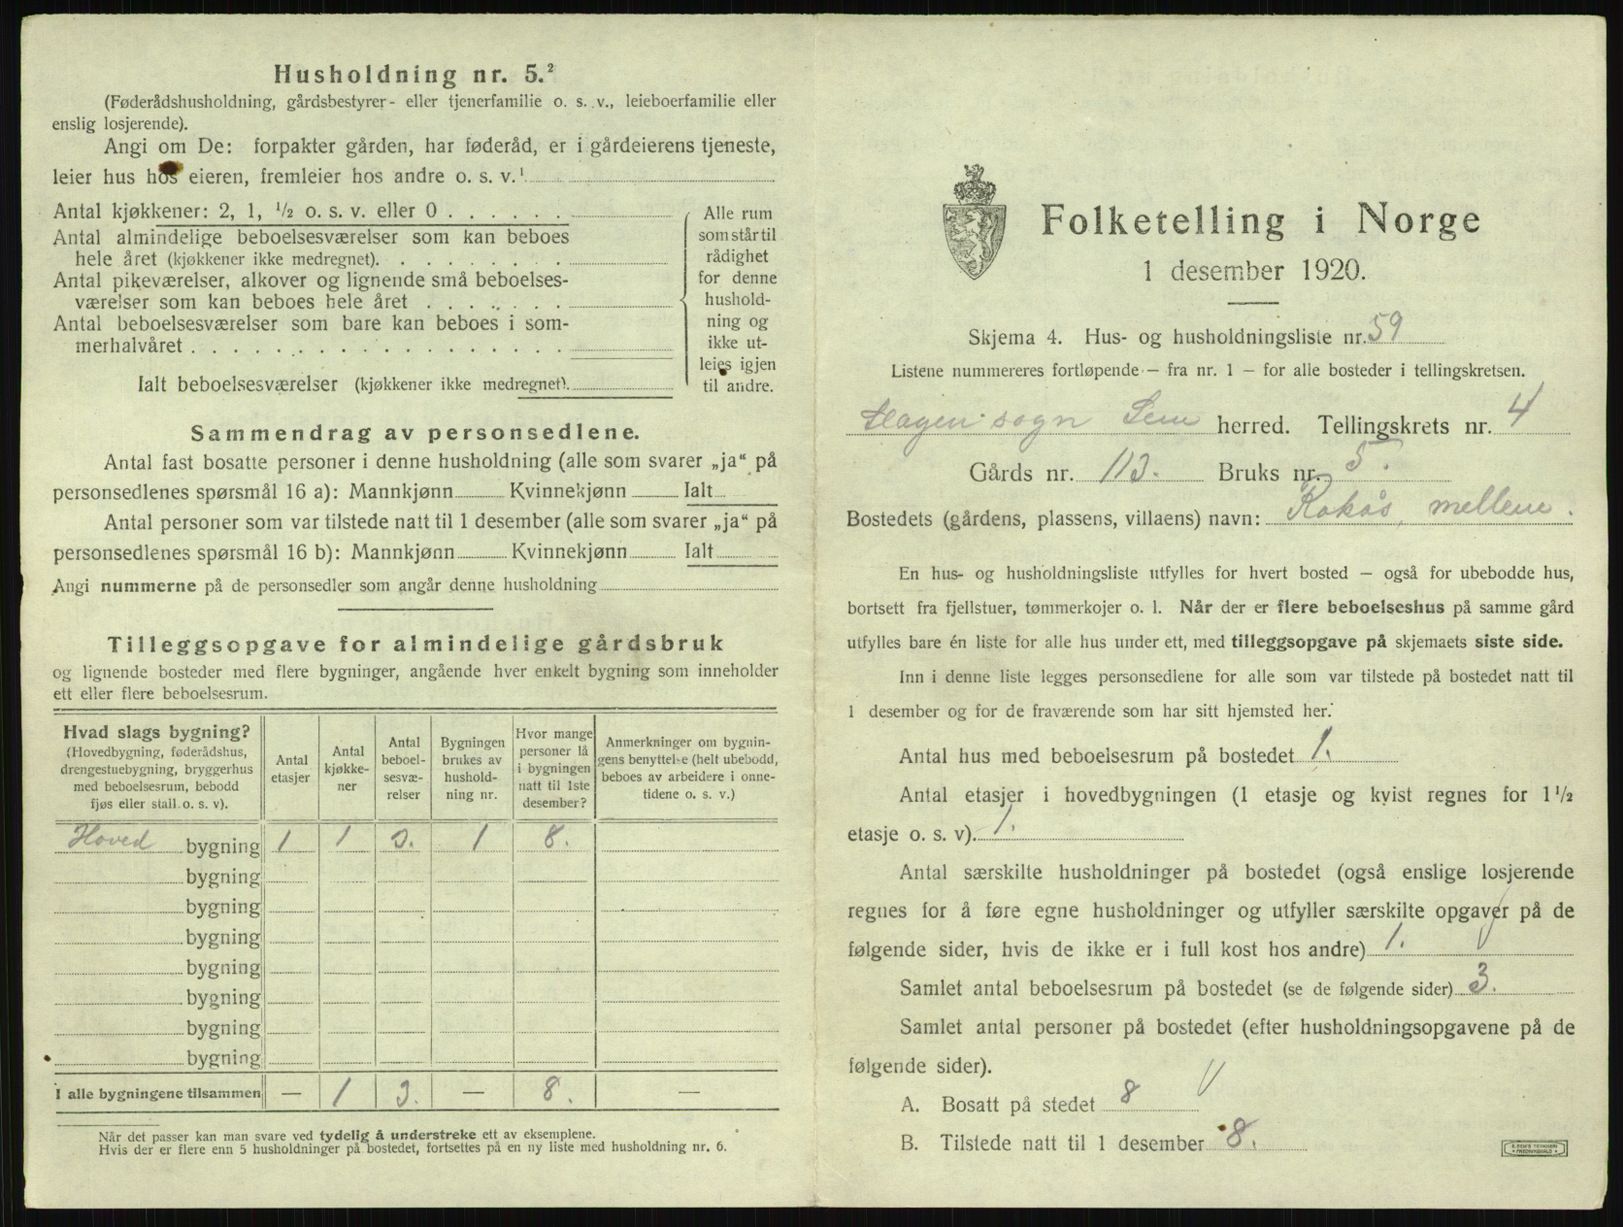 Husholdning nr. 5.²
(Føderådshusholdning, gårdsbestyrer- eller tjenerfamilie o. s. v., leieboerfamilie eller
enslig losjerende).
Angi om De: forpakter gården, har føderåd, er i gårdeierens tjeneste,
leier hus hos eieren, fremleier hos andre o. s. v.¹
Antal kjøkkener: 2, 1, ½ o. s. v. eller 0
Antal almindelige beboelsesværelser som kan beboes
hele året (kjøkkener ikke medregnet).
Antal pikeværelser, alkover og lignende små beboelses-
værelser som kan beboes hele året
Antal beboelsesværelser som bare kan beboes i som-
merhalvåret
Ialt beboelsesværelser (kjøkkener ikke medregnet).
Alle rum
som står til
rådighet
for denne
hushold-
ning og
ikke ut-
leies igjen
til andre.
Sammendrag av personsedlene.
Antal fast bosatte personer i denne husholdning (alle som svarer „ja“ på
personsedlenes spørsmål 16 a): Mannkjønn Kvinnekjønn Ialt
Antal personer som var tilstede natt til 1 desember (alle som svarer „ja“ på
personsedlenes spørsmål 16 b): Mannkjønn Kvinnekjønn Ialt
Angi nummerne på de personsedler som angår denne husholdning
Tilleggsopgave for almindelige gårdsbruk
og lignende bosteder med flere bygninger, angående hver enkelt bygning som inneholder
ett eller flere beboelsesrum.
Hvad slags bygning?
(Hovedbygning, føderådshus,
drengestuebygning, bryggerhus
med beboelsesrum, bebodd
fjøs eller stall o. s. v).
Antal
etasjer
Antal
kjøkke-
ner
Antal
beboel-
sesvæ-
relser
Bygningen
brukes av
hushold-
ning nr.
Hvor mange
personer lå
i bygningen
natt til 1ste
desember?
Anmerkninger om bygnin-
gens benyttelse (helt ubebodd,
beboes av arbeidere i onne-
tidene o. s. v.)
Hoved bygning 1 1 3. 1 8.
bygning
bygning
bygning
bygning
bygning
bygning
bygning
I alle bygningene tilsammen — 1 3. — 8. —
Når det passer kan man svare ved tydelig å understreke ett av eksemplene.
Hvis der er flere enn 5 husholdninger på bostedet, fortsettes på en ny liste med husholdning nr. 6.
Folketelling i Norge
1 desember 1920.
Skjema 4. Hus- og husholdningsliste nr. 59
Listene nummereres fortløpende — fra nr. 1 — for alle bosteder i tellingskretsen.
Slagen sogn Sem herred. Tellingskrets nr. 4
Gårds nr. 113. Bruks nr. 5.
Bostedets (gårdens, plassens, villaens) navn: Råkås, mellem.
En hus- og husholdningsliste utfylles for hvert bosted — også for ubebodde hus,
bortsett fra fjellstuer, tømmerkojer o. l. Når der er flere beboelseshus på samme gård
utfylles bare én liste for alle hus under ett, med tilleggsopgave på skjemaets siste side.
Inn i denne liste legges personsedlene for alle som var tilstede på bostedet natt til
1 desember og for de fraværende som har sitt hjemsted her.
Antal hus med beboelsesrum på bostedet 1.
Antal etasjer i hovedbygningen (1 etasje og kvist regnes for 1½
etasje o. s. v). 1.
Antal særskilte husholdninger på bostedet (også enslige losjerende
regnes for å føre egne husholdninger og utfyller særskilte opgaver på de
følgende sider, hvis de ikke er i full kost hos andre) 1.
Samlet antal beboelsesrum på bostedet (se de følgende sider) 3.
Samlet antal personer på bostedet (efter husholdningsopgavene på de
følgende sider).
A. Bosatt på stedet 8
B. Tilstede natt til 1 desember 8.